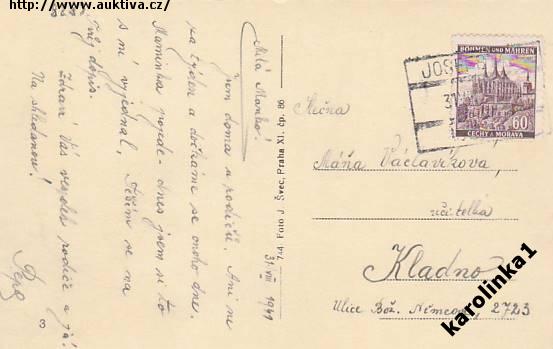 http://www.auktiva.cz/
Milá Maničko!
jsem doma u rodičů. Ani ne
za týden a dočkáme se onoho dne.
Maminka pojede - dnes jsem si to
s ní vyjednal. Těším se na
Tvůj dopis.
Zdraví Vás všechny rodiče a já.
Na shledanou!
31. VIII 1941
3
744 Foto J. Švec, Praha XI. čp. 86
BÖHMEN UND MÄHREN
60
ČECHY A MORAVA
JOS
31
Slečna
Máňa Václavíkova,
učitelka
Kladno
Ulice Bož. Němcové 2723
karolinka1